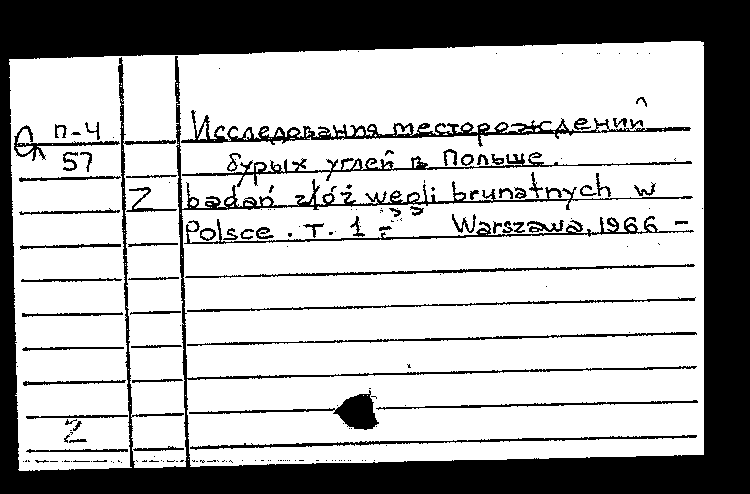 п-4 Исследования месторождений
57 бурых углей в Польше.
Z badań złóż węgli brunatnych w
Polsce. T. 1 = Warszawa, 1966 –
Z